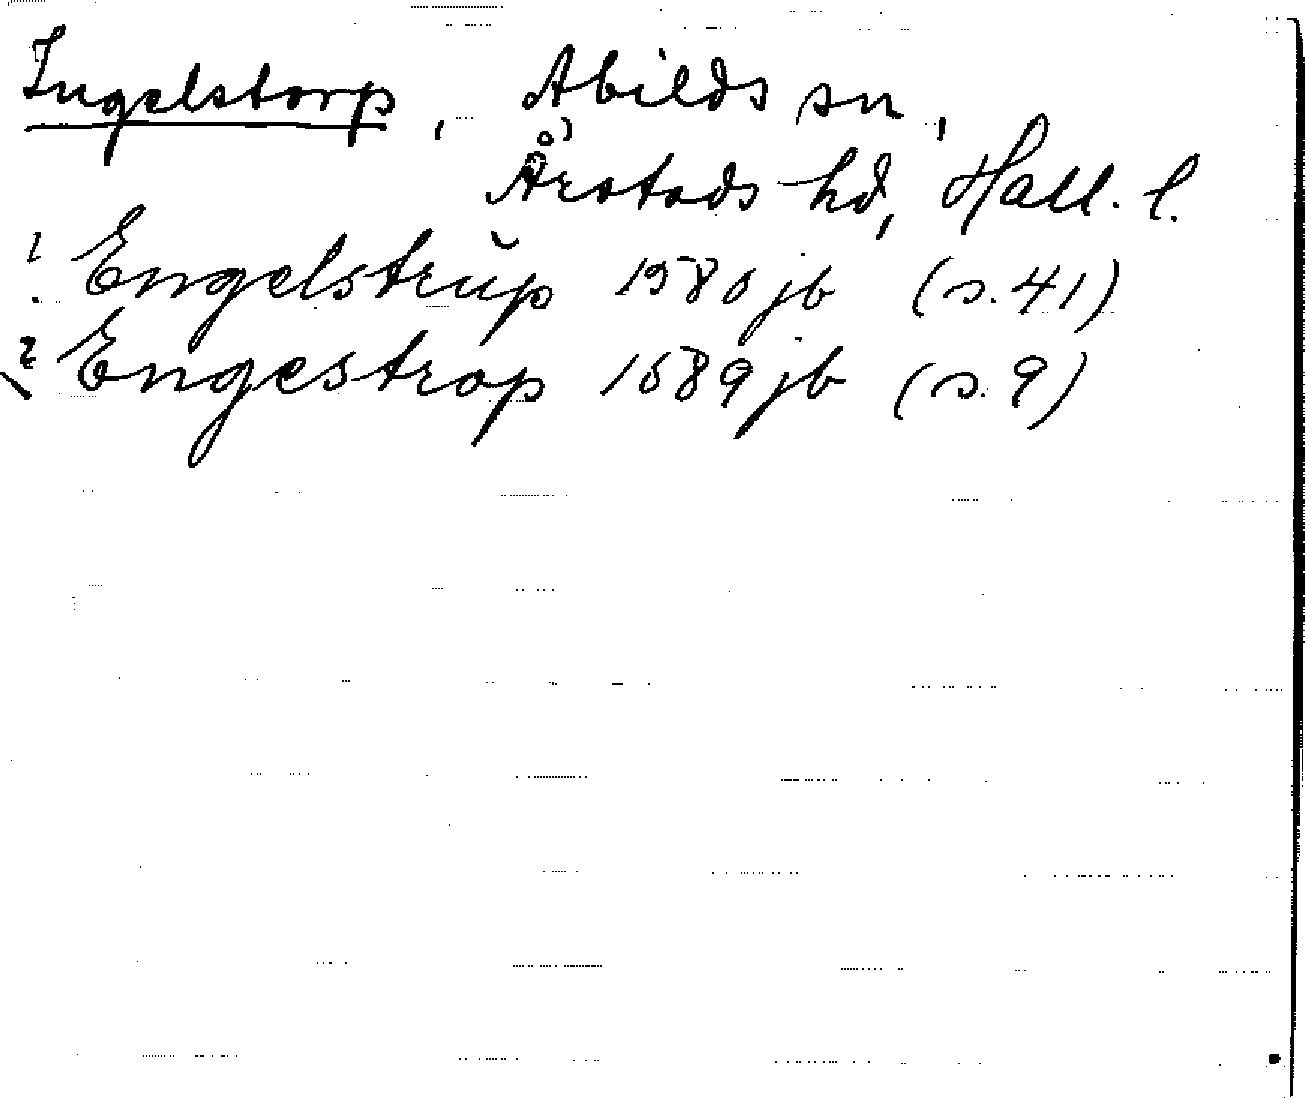 Ingelstorp, Abilds sn,
Årstads hd, Hall. l.
1. Engelstrŭp 1580 jb (s. 41)
2 Engestrop 1689 jb (s. 9)